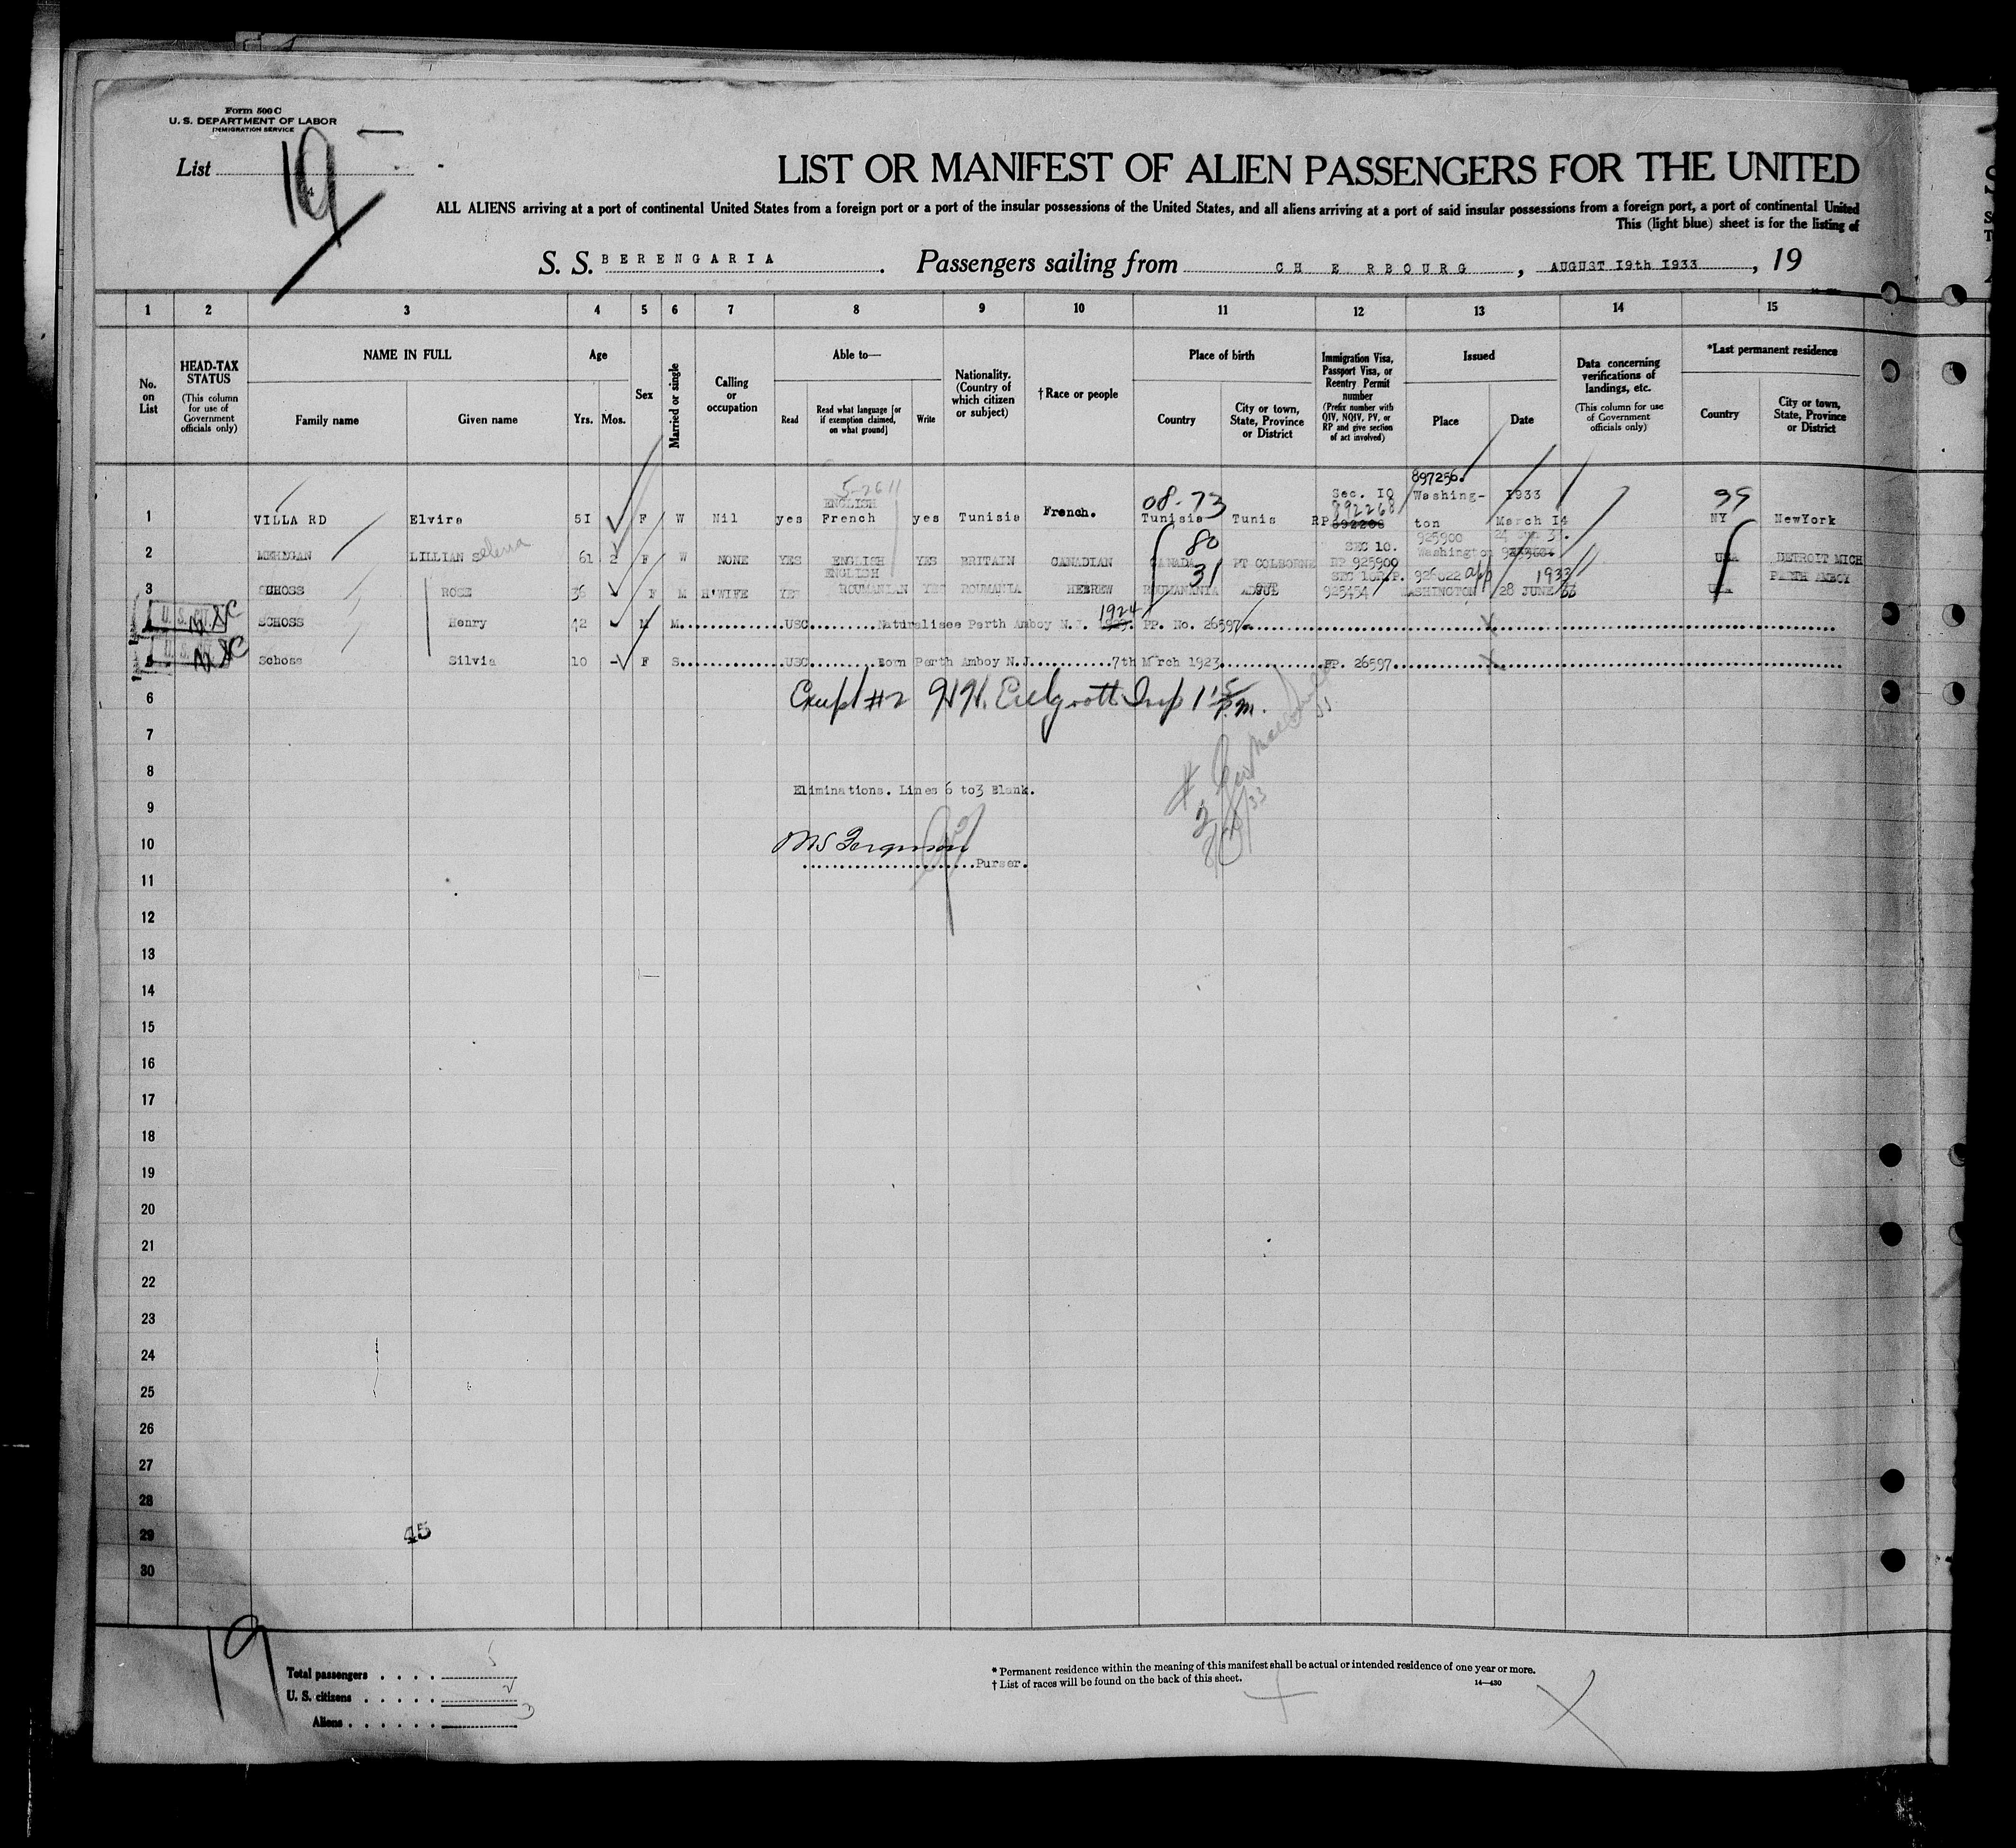 Form 500 C
U. S. DEPARTMENT OF LABOR
IMMIGRATION SERVICE
List 19
LIST OR MANIFEST OF ALIEN PASSENGERS FOR THE UNITED
ALL ALIENS arriving at a port of continental United States from a foreign port or a port of the insular possessions of the United States, and all aliens arriving at a port of said insular possessions from a foreign port, a port of continental United
This (light blue) sheet is for the listing of
S. S. BERENGARIA . Passengers sailing from CH E RBOURG , AUGUST I9th I933 , 19
1 2 3 4 5 6 7 8 9 10 11 12 13 14 15
No. on List
HEAD-TAX STATUS (This column for use of Government officials only)
NAME IN FULL
Family name Given name
Age
Yrs. Mos.
Sex
Married or single
Calling or occupation
Able to—
Read Read what language [or if exemption claimed, on what ground] Write
Nationality. (Country of which citizen or subject)
† Race or people
Place of birth
Country City or town, State, Province or District
Immigration Visa, Passport Visa, or Reentry Permit number (Prefix number with QIV, NQIV, PV, or RP and give section of act involved)
Issued
Place Date
Data concerning verifications of landings, etc. (This column for use of Government officials only)
*Last permanent residence
Country City or town, State, Province or District
897256.
5-2611
ENGLISH 08-73 Sec. IO Washing- I933 99
892268
1 VILLA RD Elvire 5I F W Nil yes French yes Tunisie French. Tunisie Tunis RP 892208 ton March I4 NY NewYork
80 SEC 10. 925900 Washington
2 MEHEGAN LILLIAN Selena 61 2 F W NONE YES ENGLISH YES BRITAIN CANADIAN CANADA PT COLBORNE RP 925900 USA DETROIT MICH
ENGLISH 31 926022 app 1933 PERTH AMBOY
3 SCHOSS ROSE 36 F M H'WIFE YES ROUMANIAN YES ROUMANIA HEBREW ROUMANANIA 925454 WASHINGTON 28 JUNE 33
1924
4 SCHOSS Henry 42 M M. USC Naturalisee Perth Amboy N.J. PP. No. 26597
5 Schoss Silvia 10 - F S. USC Born Perth Amboy N.J. 7th March 1923 PP. 26597
6
#2
7
8
Eliminations. Lines 6 to3 Blank.
9
10 Ferguson
Purser.
11
12
13
14
15
16
17
18
19
20
21
22
23
24
25
26
27
28
29 45
30
19
Total passengers . . . . 5
U. S. citizens . . . . . 2
Aliens . . . . . . 3
* Permanent residence within the meaning of this manifest shall be actual or intended residence of one year or more.
† List of races will be found on the back of this sheet. 14—430